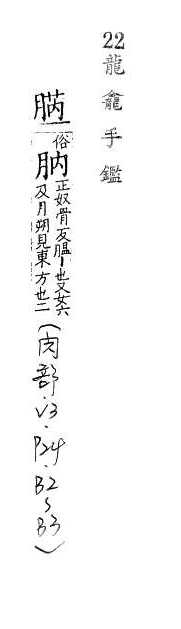 22龍龕手鑑
俗肭正奴骨反膃丨也又女六反月朔見東方也二(肉部.V3.P24.B2~B3)